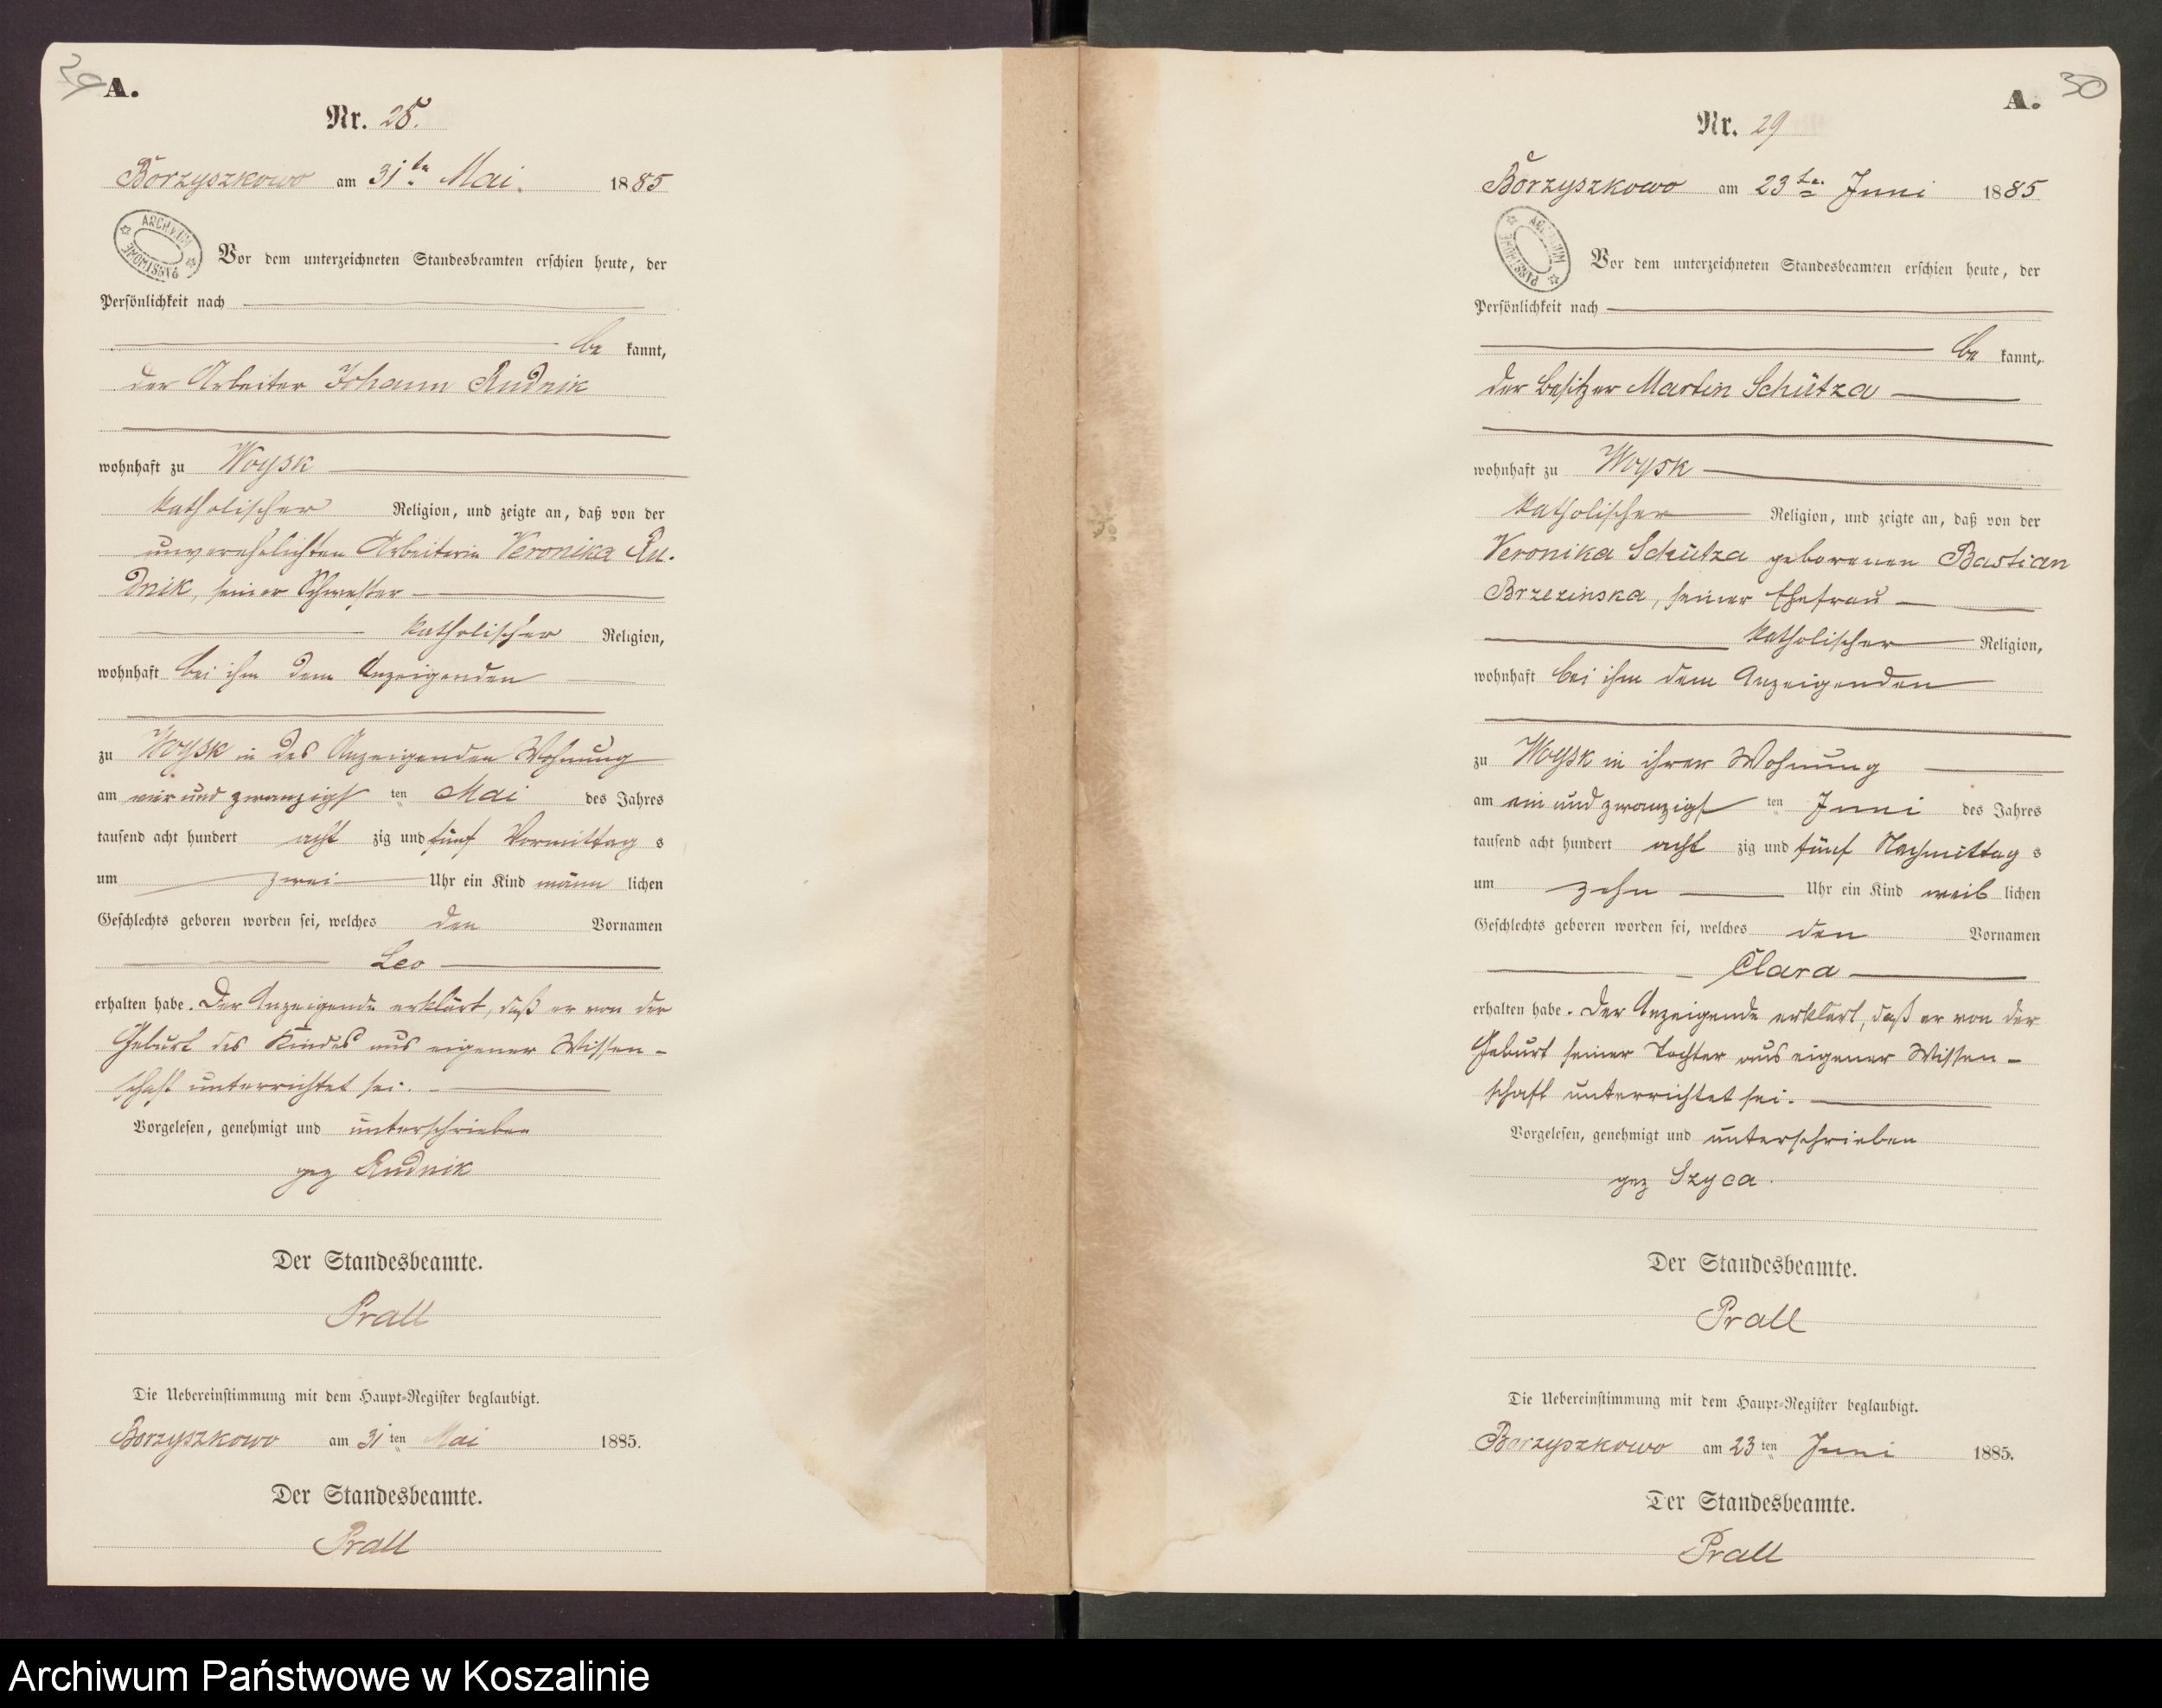 29
A.
Nr. 28.
Borzyszkowo am 31ten Mai. 1885
ARCHIWUM PAŃSTWOWE
Vor dem unterzeichneten Standesbeamten erschien heute, der
Persönlichkeit nach
be kannt,
der Arbeiter Johann Rudnik
wohnhaft zu Woysk
katholischer Religion, und zeigte an, daß von der
unverehelichten Arbeiterin Veronika Ru-
dnik, seiner Schwester
katholischer Religion,
wohnhaft bei ihm dem Anzeigenden
zu Woysk in des Anzeigenden Wohnung
am vier und zwanzigsten Mai des Jahres
tausend acht hundert acht zig und fünf Vormittag s
um zwei Uhr ein Kind männ lichen
Geschlechts geboren worden sei, welches den Vornamen
Leo
erhalten habe. Der Anzeigende erklärt, daß er von der
Geburt des Kindes aus eigener Wissen-
schaft unterrichtet sei.
Vorgelesen, genehmigt und unterschrieben
gez Rudnik
Der Standesbeamte.
Prall
Die Uebereinstimmung mit dem Haupt-Register beglaubigt.
Borzyszkowo am 31 ten Mai 1885.
Der Standesbeamte.
Prall
A.
30
Nr. 29
Borzyszkowo am 23ten Juni 1885
ARCHIWUM PAŃSTWOWE
Vor dem unterzeichneten Standesbeamten erschien heute, der
Persönlichkeit nach
be kannt,
der Besitzer Martin Schütza
wohnhaft zu Woysk
katholischer Religion, und zeigte an, daß von der
Veronika Schütza geborenen Bastian
Brzezinska, seiner Ehefrau
katholischer Religion,
wohnhaft bei ihm dem Anzeigenden
zu Woysk in ihrer Wohnung
am ein und zwanzigsten Juni des Jahres
tausend acht hundert acht zig und fünf Nachmittag s
um zehn Uhr ein Kind weib lichen
Geschlechts geboren worden sei, welches den Vornamen
Clara
erhalten habe. Der Anzeigende erklärt, daß er von der
Geburt seiner Tochter aus eigener Wissen-
schaft unterrichtet sei.
Vorgelesen, genehmigt und unterschrieben
gez Szyca.
Der Standesbeamte.
Prall
Die Uebereinstimmung mit dem Haupt-Register beglaubigt.
Borzyszkowo am 23 ten Juni 1885.
Der Standesbeamte.
Prall
Archiwum Państwowe w Koszalinie